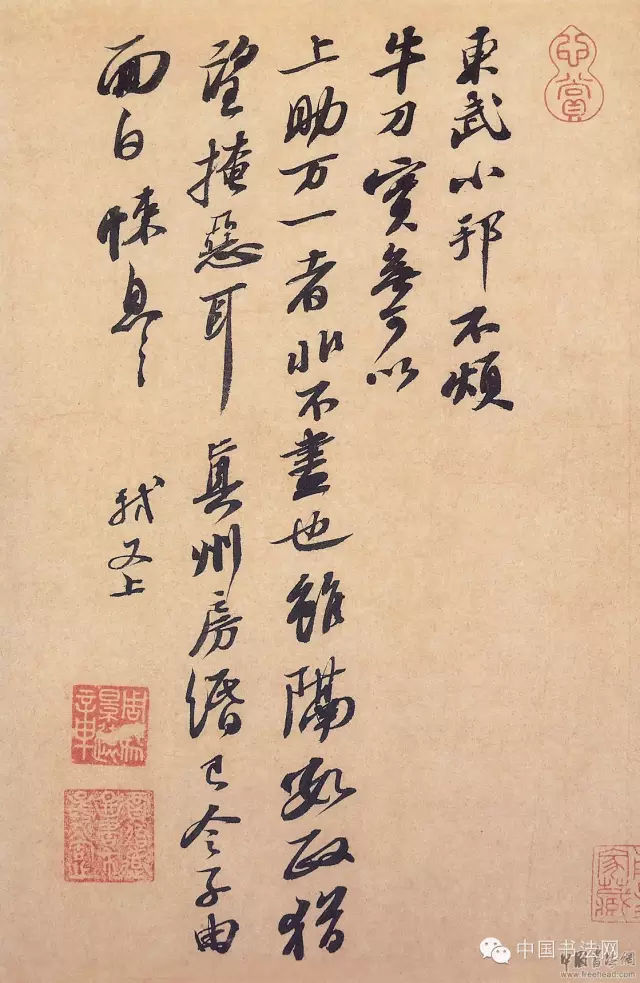 東武小邦不煩
牛刀實無可以
上助万一者非不盡也雖隔數政猶
望掩惡耳 真州房緡已令子由
面白悚息〻
軾又上
中国书法网
www.freehead.com